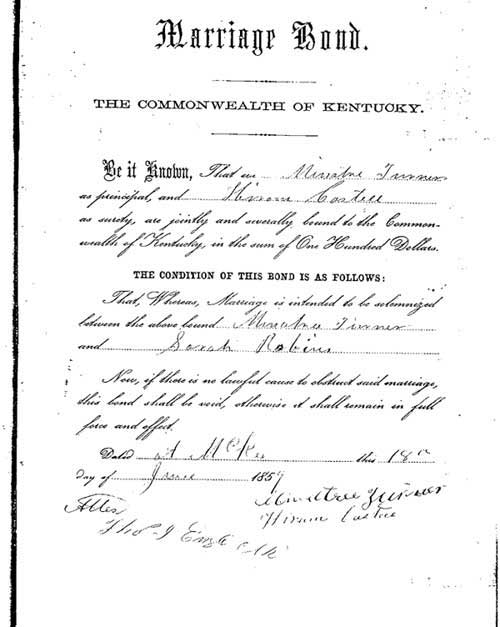 Marriage Bond.
THE COMMONWEALTH OF KENTUCKY.
Be it Known, That we Minitree Turner
as principal, and Hiram Casteel
as surety, are jointly and severally bound to the Common-
wealth of Kentucky, in the sum of One Hundred Dollars.
THE CONDITION OF THIS BOND IS AS FOLLOWS:
That, Whereas, Marriage is intended to be solemnized
between the above bound Turner
and Sarah Robins
Now, if there is no lawful cause to obstruct said marriage,
this bond shall be void, otherwise it shall remain in full
force and effect.
Dated at McKee this 18
day of June 1859
Turner
Attes Hiram
Tho J